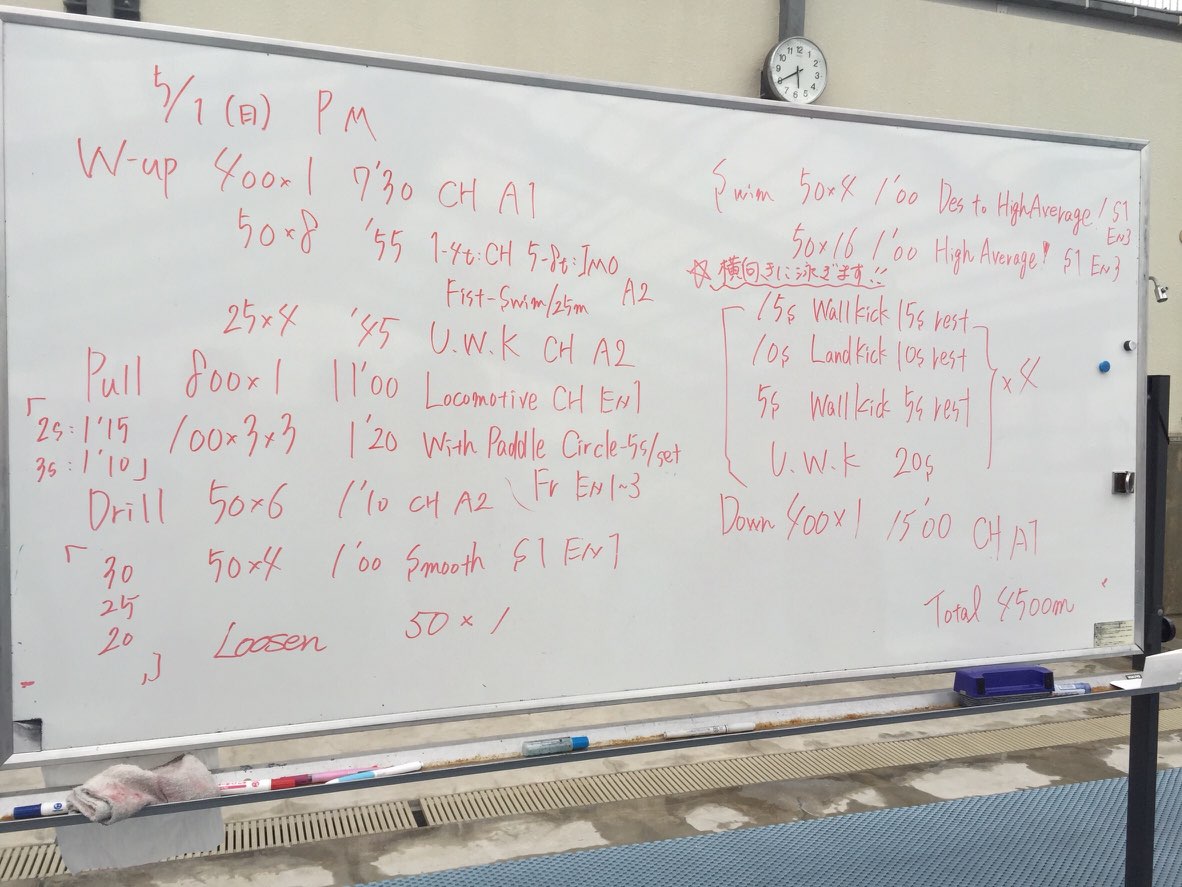 5/1 (日) PM
W-up 400×1 7'30 CH A1
50×8 '55 1-4t:CH 5-8t:IMO
Fist-Swim/25m A2
25×4 '45 U.W.K CH A2
Pull 800×1 11'00 Locomotive CH EN1
「2s:1'15 100×3×3 1'20 With Paddle Circle-5s/set
3s:1'10」 Fr EN1~3
Drill 50×6 1'10 CH A2
「30 50×4 1'00 Smooth S1 EN1
25
20」 Loosen 50×1
Swim 50×4 1'00 Des to HighAverage! S1
EN3
50×16 1'00 High Average! S1 EN3
☆横向きに泳ぎます!!
15s Wallkick 15s rest
10s Landkick 10s rest
5s Wallkick 5s rest
×4
U.W.K 20s
Down 400×1 15'00 CH A1
Total 4500m
12
1
2
3
4
5
6
7
8
9
10
11